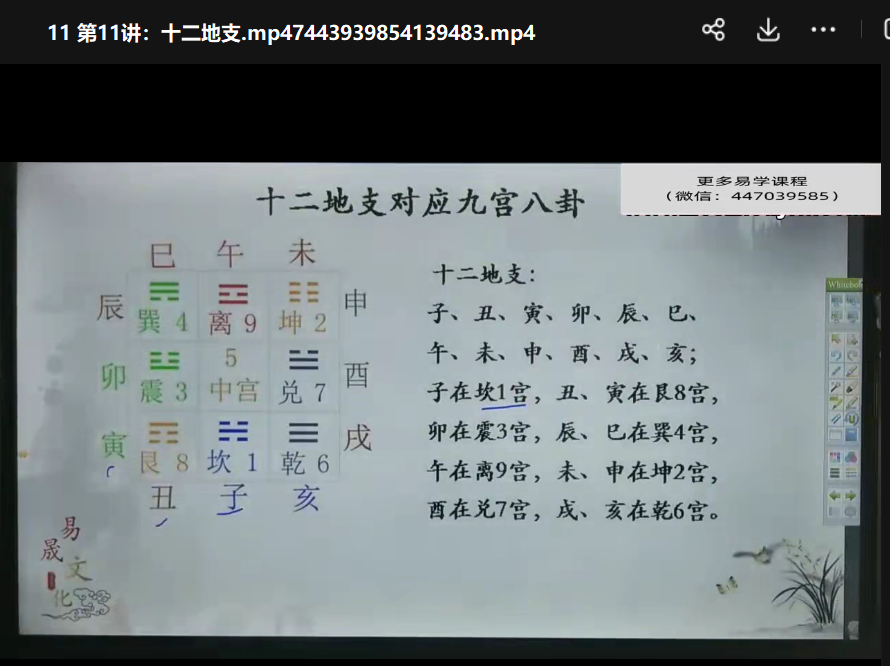 11 第11讲：十二地支.mp47443939854139483.mp4
更多易学课程
（微信：447039585）
十二地支对应九宫八卦
巳 午 未
辰 巽 4 离 9 坤 2 申
卯 震 3 5 中宫 兑 7 酉
寅 艮 8 坎 1 乾 6 戌
丑 子 亥
十二地支：
子、丑、寅、卯、辰、巳、
午、未、申、酉、戌、亥；
子在坎1宫，丑、寅在艮8宫，
卯在震3宫，辰、巳在巽4宫，
午在离9宫，未、申在坤2宫，
酉在兑7宫，戌、亥在乾6宫。
易晟文化